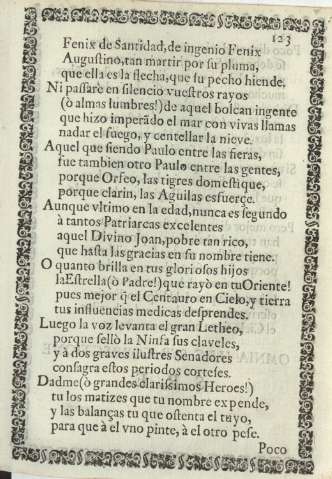 123
Fenix de Santidad, de ingenio Fenix
Augustino, tan martir por su pluma,
que ella es la flecha, que su pecho hiende,
Ni passarè en silencio vuestros rayos
(ò almas lumbres!) de aquel bolcan ingente
que hizo imperãdo el mar con vivas llamas
nadar el fuego, y centellar la nieve.
Aquel que siendo Paulo entre las fieras,
fue tambien otro Paulo entre las gentes,
porque Orfeo, las tigres domestique,
porque clarin, las Aguilas esfuerce.
Aunque vltimo en la edad, nunca es segundo
à tantos Patriarcas excelentes
aquel Divino Joan, pobre tan rico,
que hasta las gracias en su nombre tiene.
O quanto brilla en tus gloriosos hijos
la Estrella (ò Padre!) que rayò en tu Oriente!
pues mejor q̃ el Centauro en Cielo, y tierra
tus influencias medicas desprendes.
Luego la voz levanta el gran Letheo,
porque sellò la Ninfa sus claveles,
y à dos graves ilustres Senadores
consagra estos periodos corteses.
Dadme (ò grandes clarisimos Heroes!)
tu los matizes que tu nombre expende,
y las balanças tu que ostenta el tuyo,
para que à el vno pinte, à el otro pese.
Poco